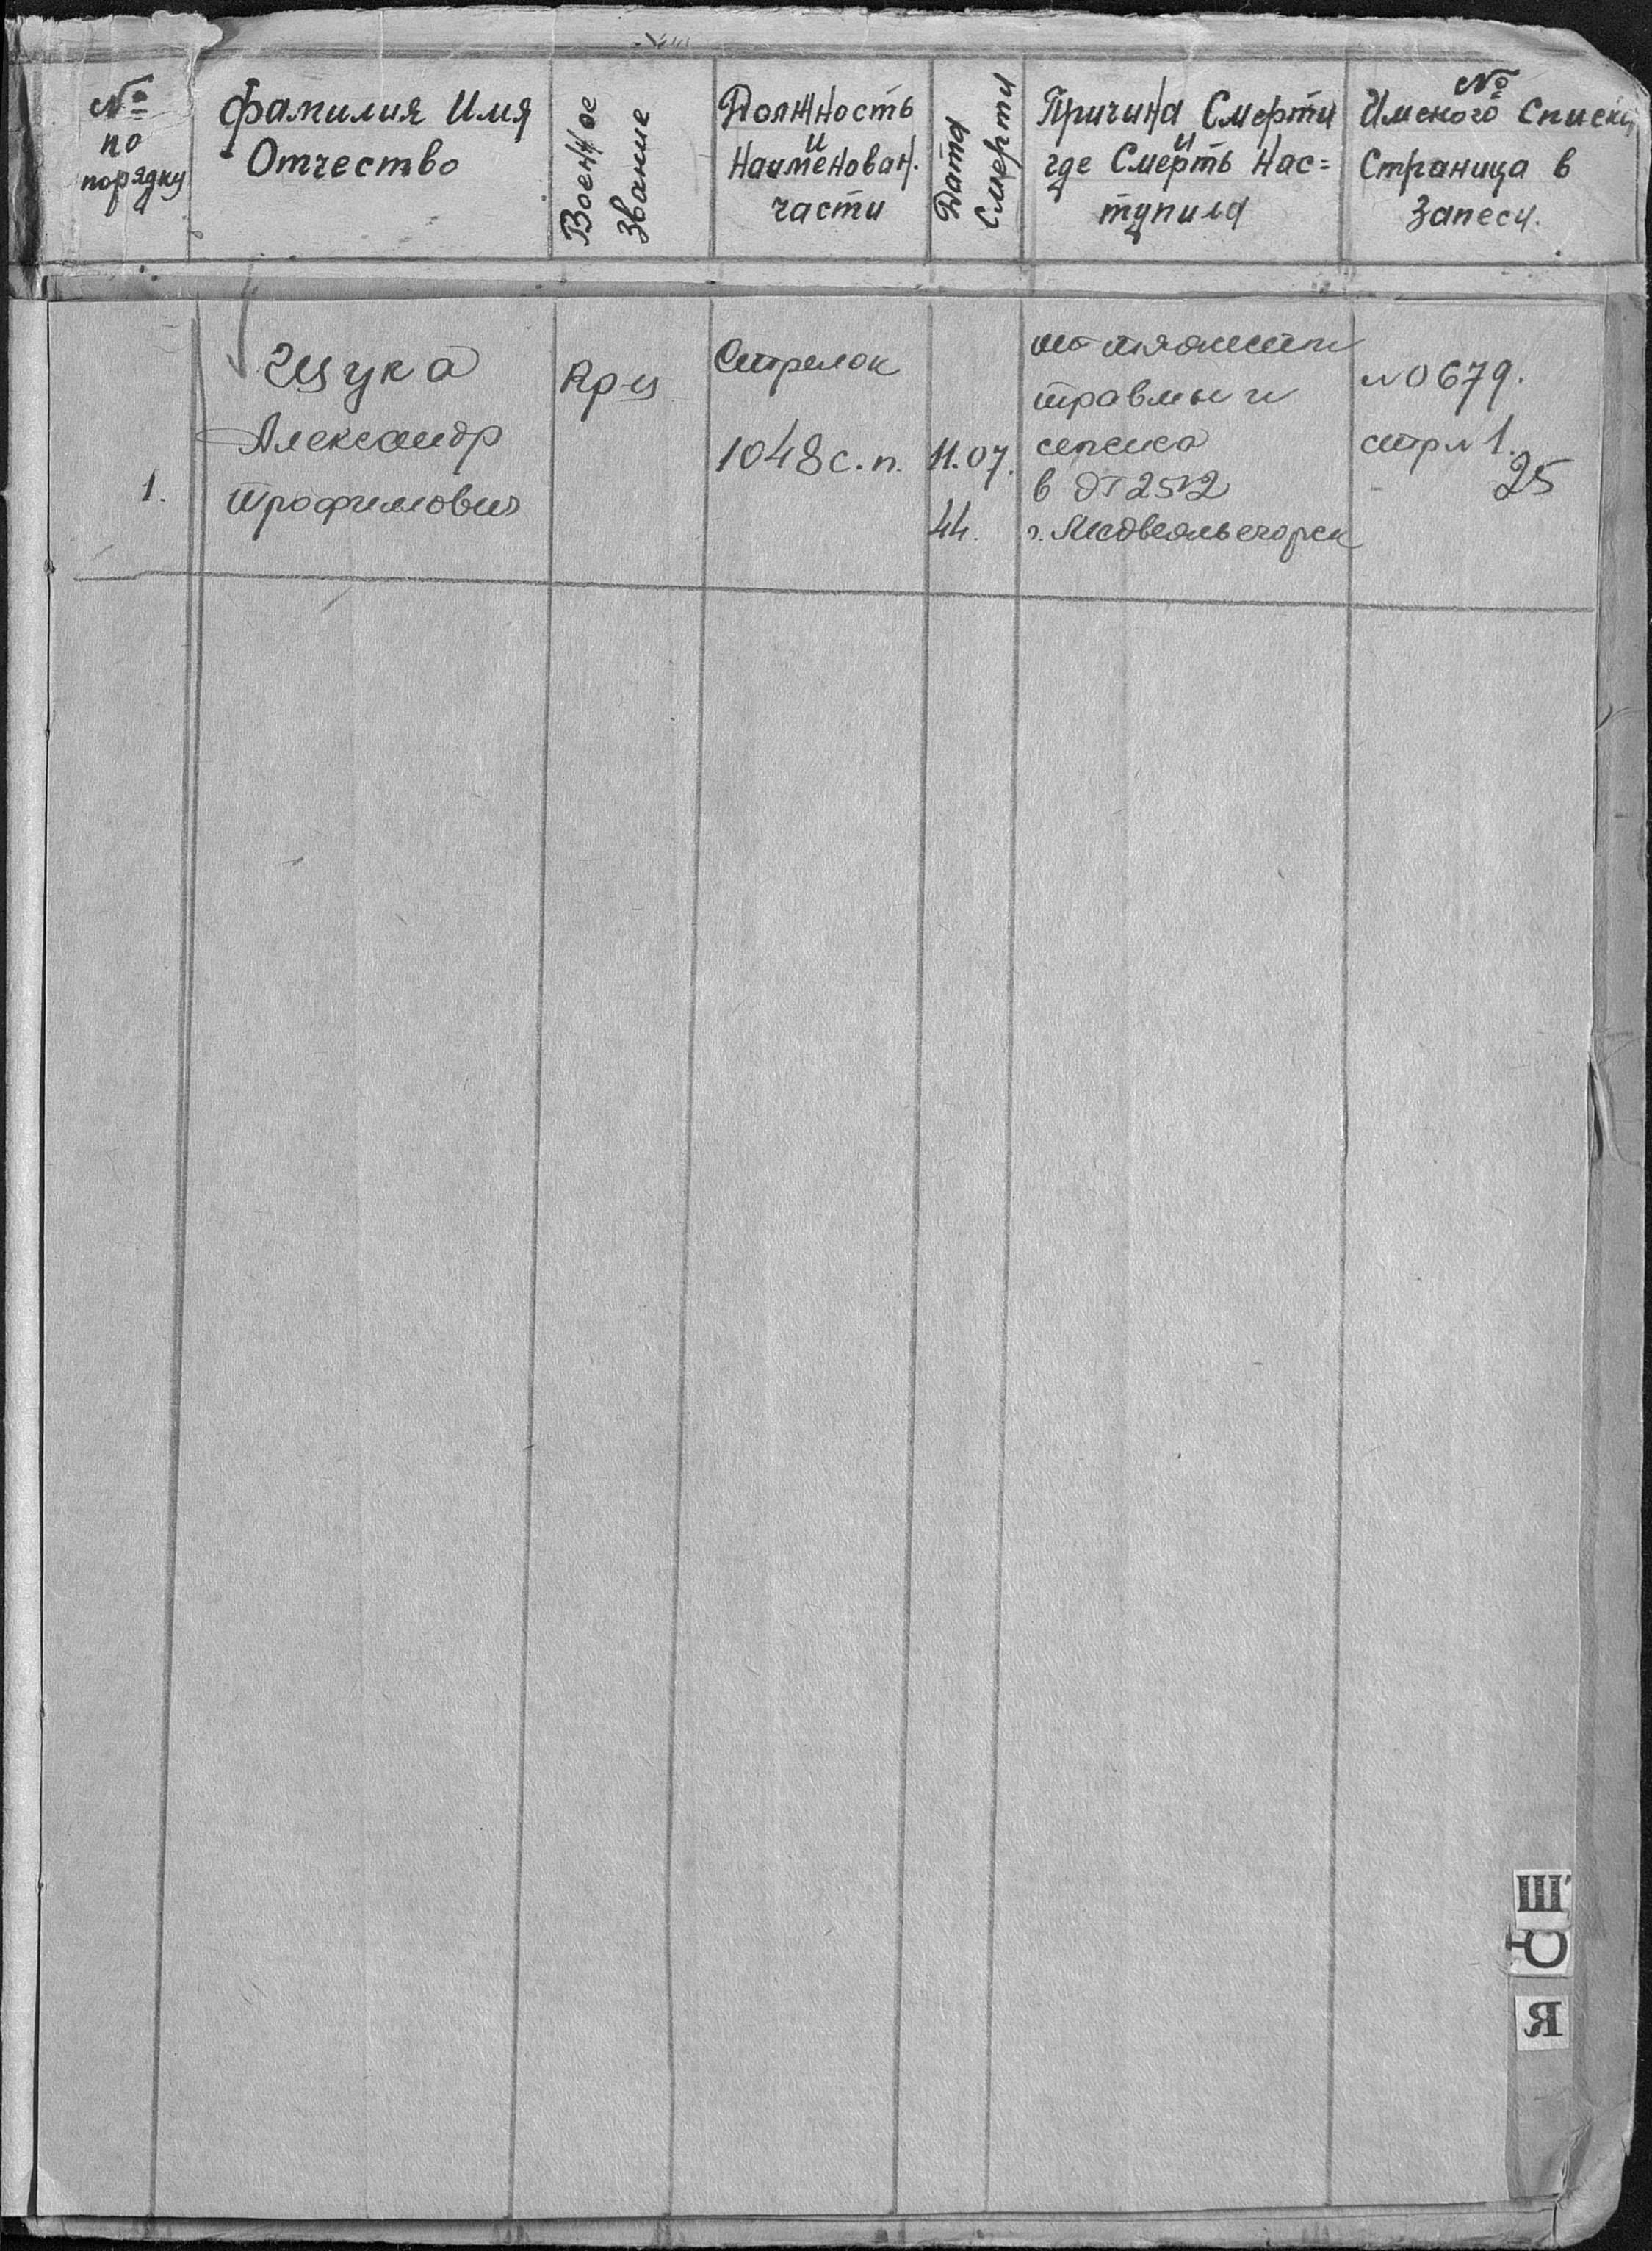 №
по
порядку
Фамилия Имя
Отчество
Военное
Звание
Должность
и
Наименован.
части
Дата
Смерти
Причина Смерти
и
где Смерть нас=
тупила
№
Именого Списка
Страница в
Запеси.
1.
Щука
Александр
Трофимович
Кр-ц
Стрелок
1048 с.п.
11.07.
44.
от
травмы и
сепсиса
в ЭГ 2512
г. Медвежьегорск
№ 0679.
стр № 1.
25
Щ
Ю
Я